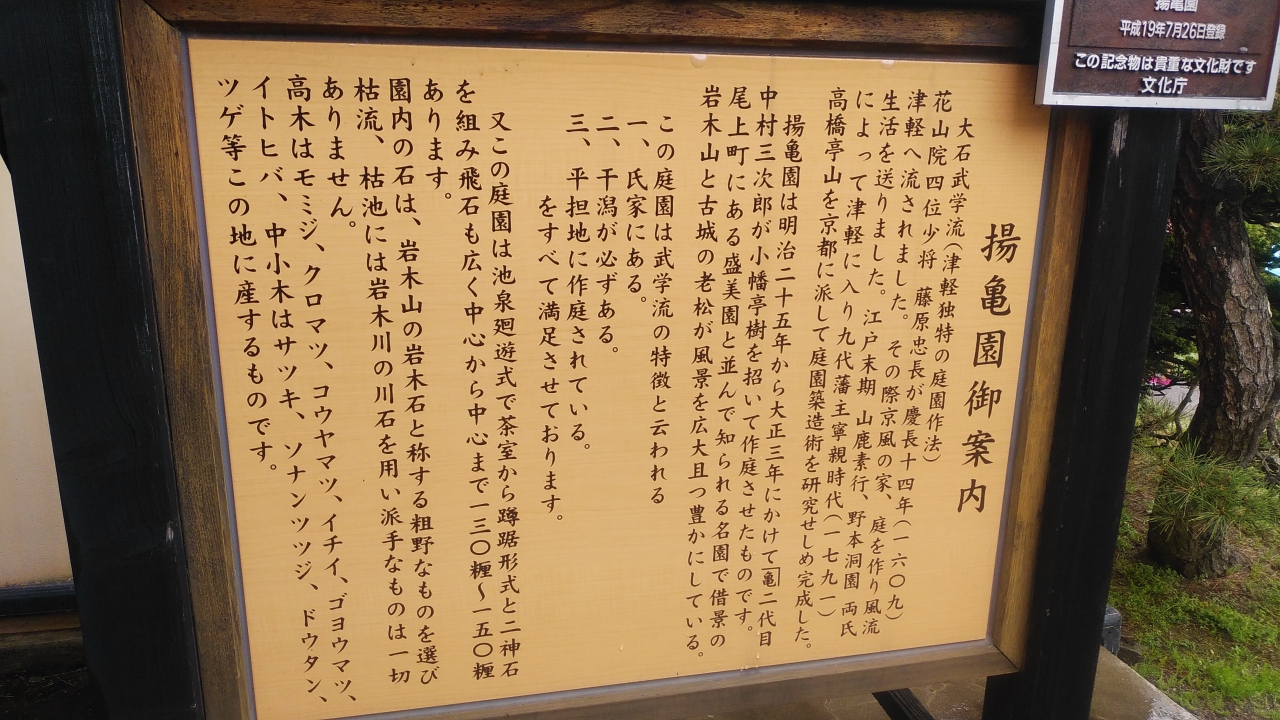 揚亀園御案内
大石武学流(津軽独特の庭園作法)
花山院四位少将 藤原忠長が慶長十四年(一六〇九)
津軽へ流されました。その際京風の家、庭を作り風流
生活を送りました。江戸末期 山鹿素行、野本洞園 両氏
によって津軽に入り九代藩主寧親時代(一七九一)
高橋亭山を京都に派して庭園築造術を研究せしめ完成した。
揚亀園は明治二十五年から大正三年にかけて亀二代目
中村三次郎が小幡亭樹を招いて作庭させたものです。
尾上町にある盛美園と並んで知られる名園で借景の
岩木山と古城の老松が風景を広大且つ豊かにしている。
この庭園は武学流の特徴と云われる
一、氏家にある。
二、干潟が必ずある。
三、平担地に作庭されている。
をすべて満足させております。
又この庭園は池泉廻遊式で茶室から蹲踞形式と二神石
を組み飛石も広く中心から中心まで一三〇糎〜一五〇糎
あります。
園内の石は、岩木山の岩木石と称する粗野なものを選び
枯流、枯池には岩木川の川石を用い派手なものは一切
ありません。
高木はモミジ、クロマツ、コウヤマツ、イチイ、ゴヨウマツ、
イトヒバ、中小木はサツキ、ソナンツツジ、ドウタン、
ツゲ等この地に産するものです。
揚亀園
平成19年7月26日登録
この記念物は貴重な文化財です
文化庁